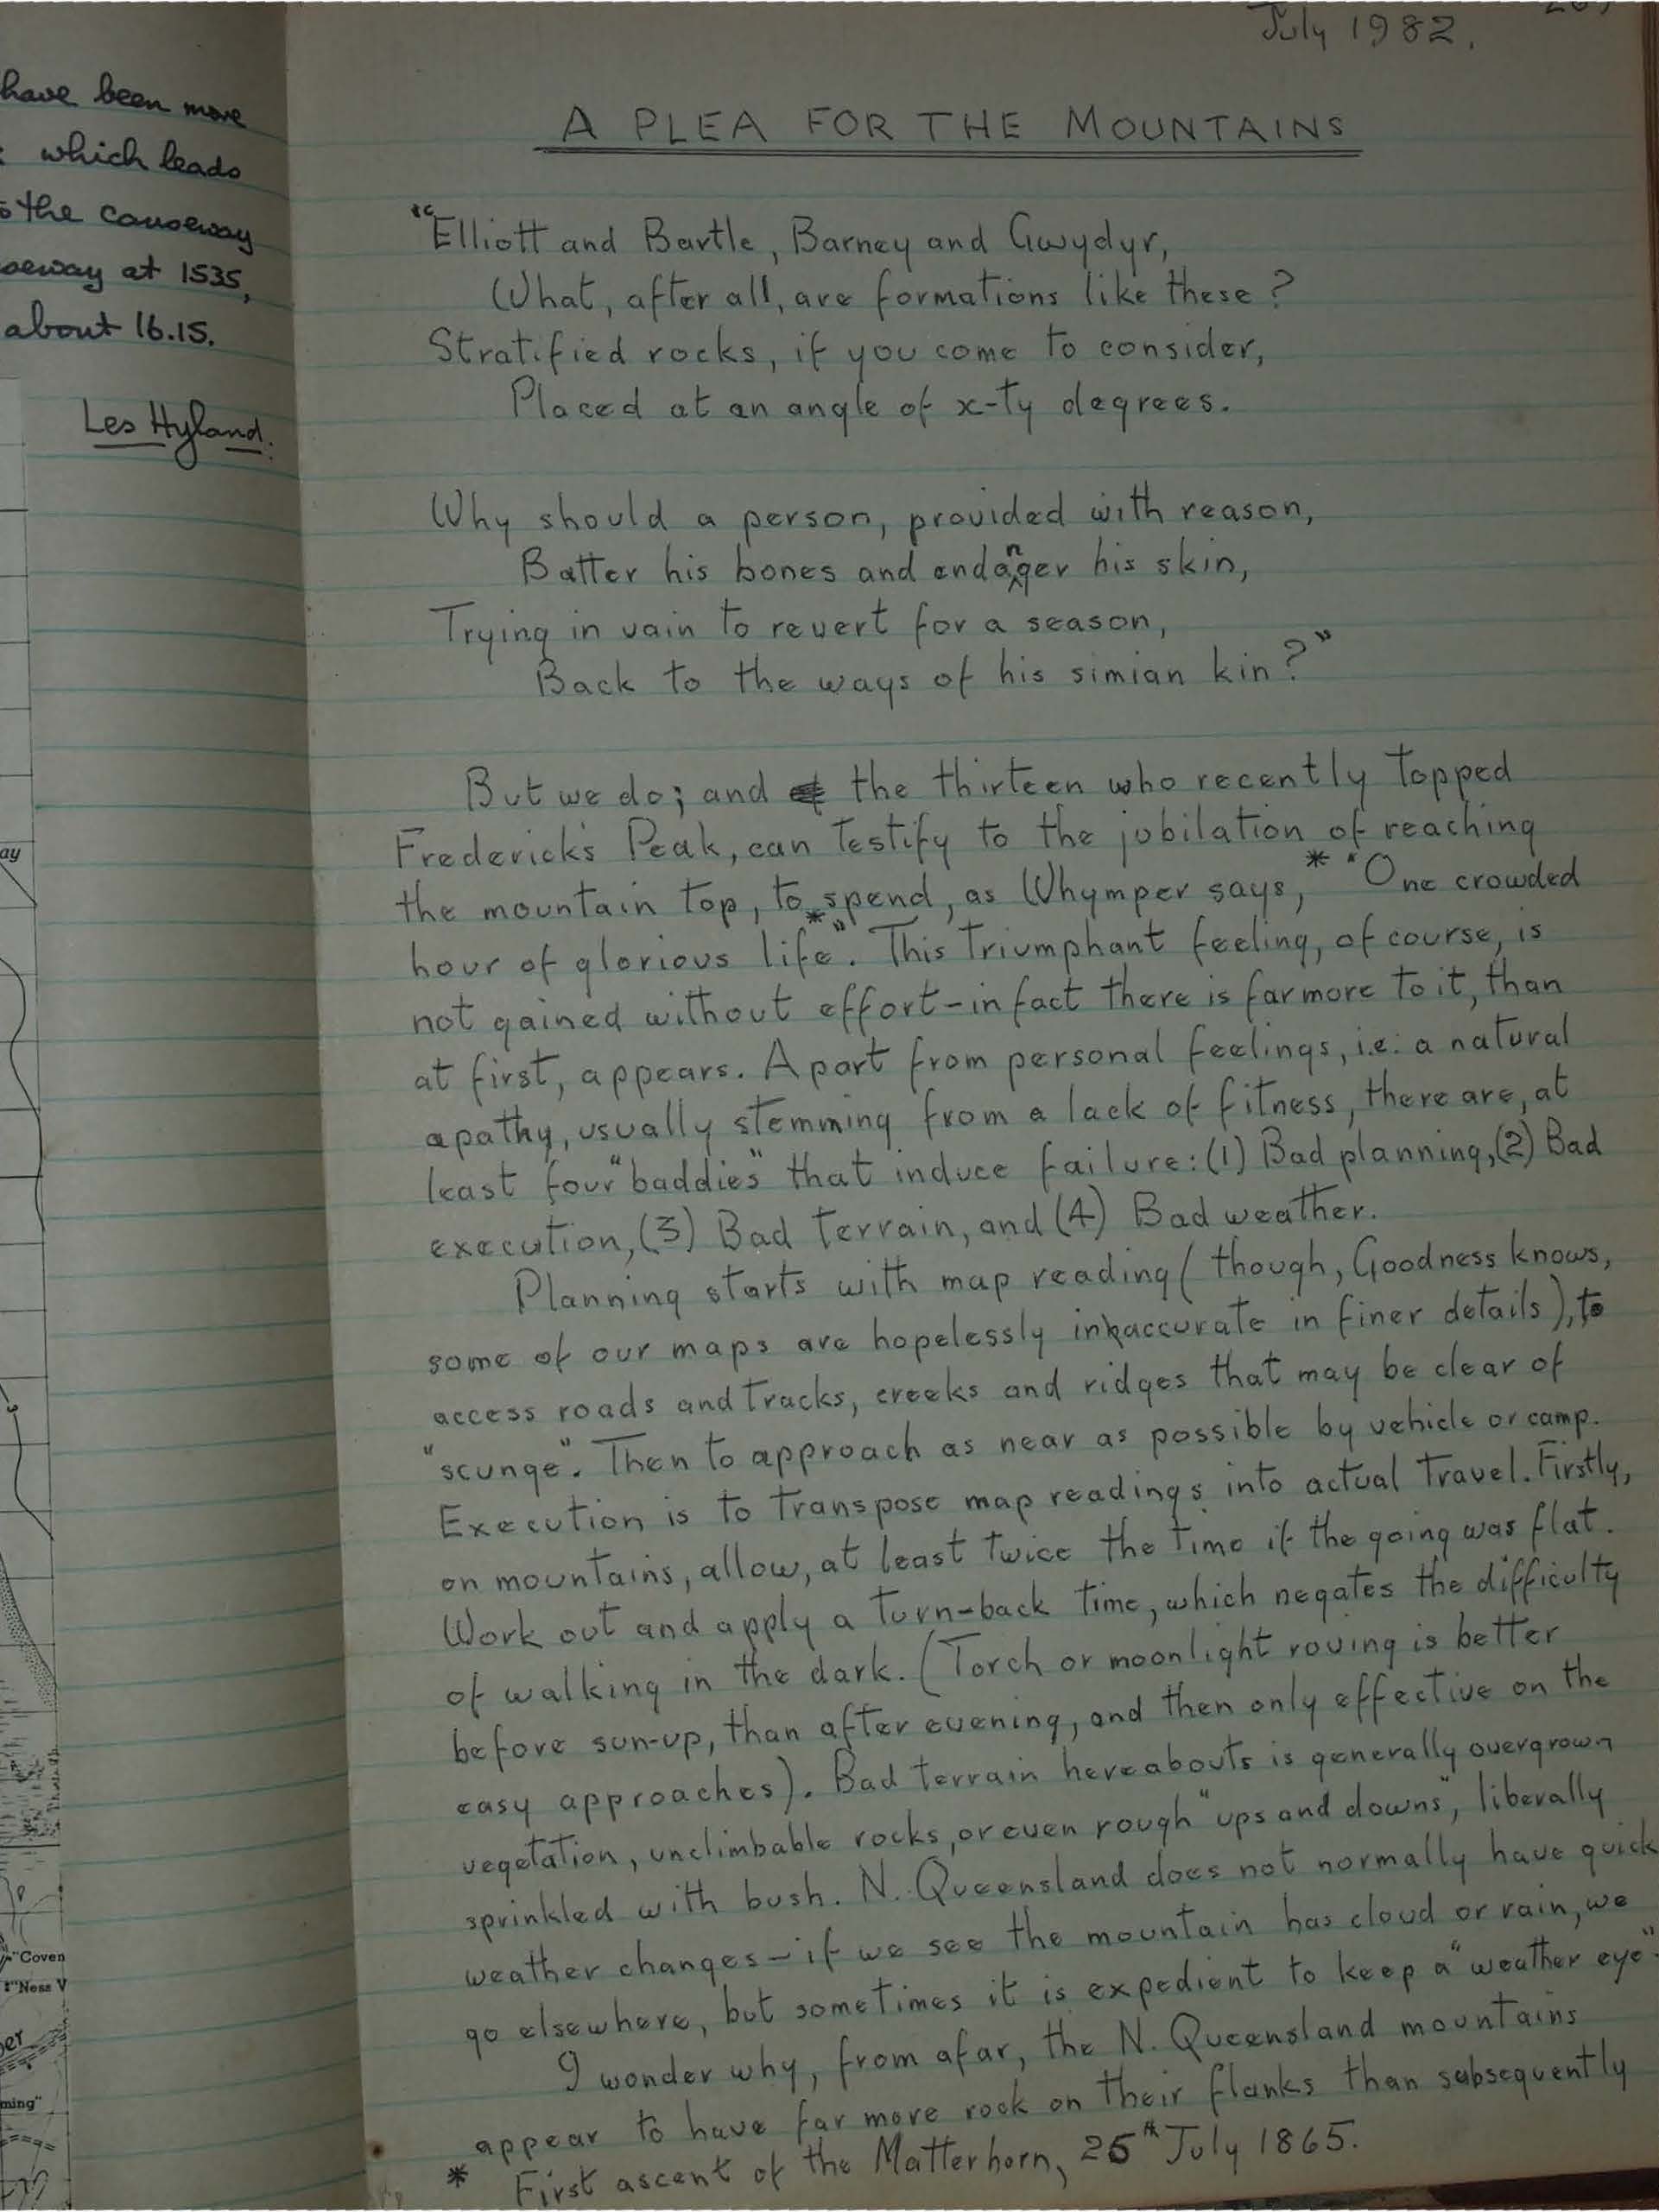 have been more
which leads
the causeway
at 1535,
about 16.15.
Les Hyland.
ay
"Coven
"Ness V
ber
ming"
July 1982.
A PLEA FOR THE MOUNTAINS
"Elliott and Bartle, Barney and Gwydyr,
What, after all, are formations like these?
Stratified rocks, if you come to consider,
Placed at an angle of x-ty degrees.
Why should a person, provided with reason,
Batter his bones and endanger his skin,
Trying in vain to revert for a season,
Back to the ways of his simian kin?"
But we do; and the thirteen who recently topped
Frederick's Peak, can testify to the jubilation of reaching
the mountain top, to spend, as Whymper says, * "One crowded
hour of glorious life"*. This triumphant feeling, of course, is
not gained without effort - in fact there is far more to it, than
at first, appears. Apart from personal feelings, i.e: a natural
apathy, usually stemming from a lack of fitness, there are, at
least four "baddies" that induce failure: (1) Bad planning, (2) Bad
execution, (3) Bad terrain, and (4) Bad weather.
Planning starts with map reading (though, Goodness knows,
some of our maps are hopelessly inaccurate in finer details), to
access roads and tracks, creeks and ridges that may be clear of
"scunge". Then to approach as near as possible by vehicle or camp.
Execution is to transpose map readings into actual travel. Firstly,
on mountains, allow, at least twice the time if the going was flat.
Work out and apply a turn-back time, which negates the difficulty
of walking in the dark. (Torch or moonlight roving is better
before sun-up, than after evening, and then only effective on the
easy approaches). Bad terrain hereabouts is generally overgrown
vegetation, unclimbable rocks, or even rough "ups and downs", liberally
sprinkled with bush. N. Queensland does not normally have quick
weather changes - if we see the mountain has cloud or rain, we
go elsewhere, but sometimes it is expedient to keep a "weather eye".
I wonder why, from afar, the N. Queensland mountains
appear to have far more rock on their flanks than subsequently
* First ascent of the Matterhorn, 25th July 1865.